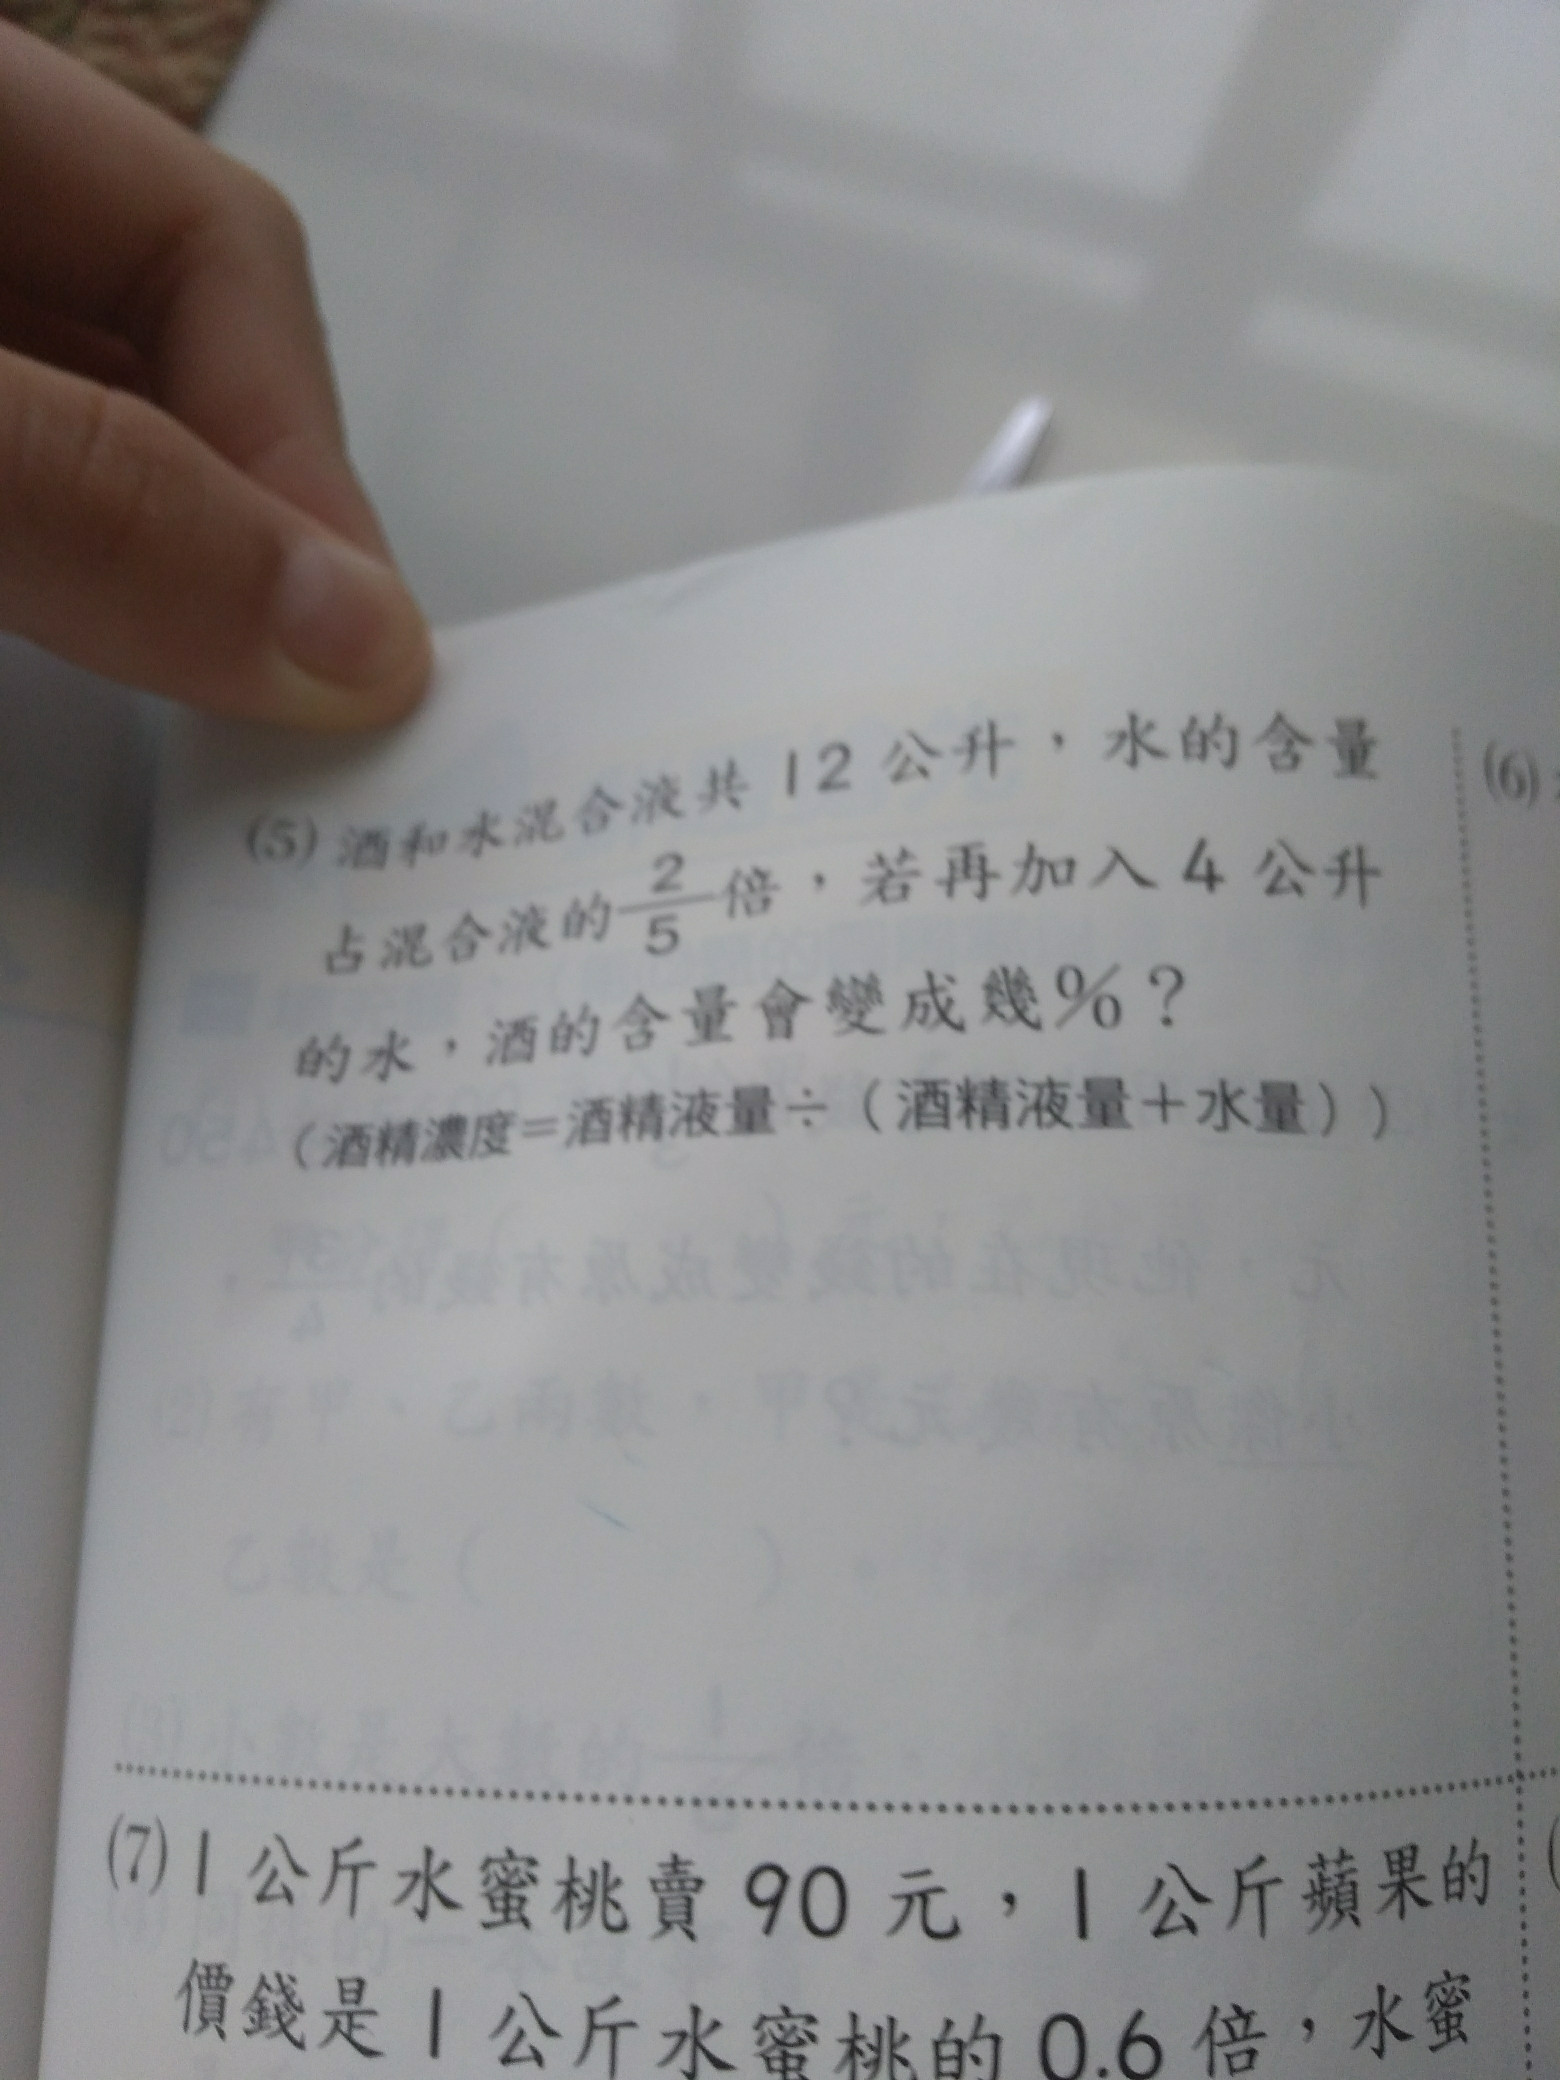 (5) 酒和水混合液共 12 公升，水的含量
占混合液的 2/5 倍，若再加入 4 公升
的水，酒的含量會變成幾%？
（酒精濃度＝酒精液量÷（酒精液量＋水量））
(6)
(7) 1 公斤水蜜桃賣 90 元，1 公斤蘋果的
價錢是 1 公斤水蜜桃的 0.6 倍，水蜜